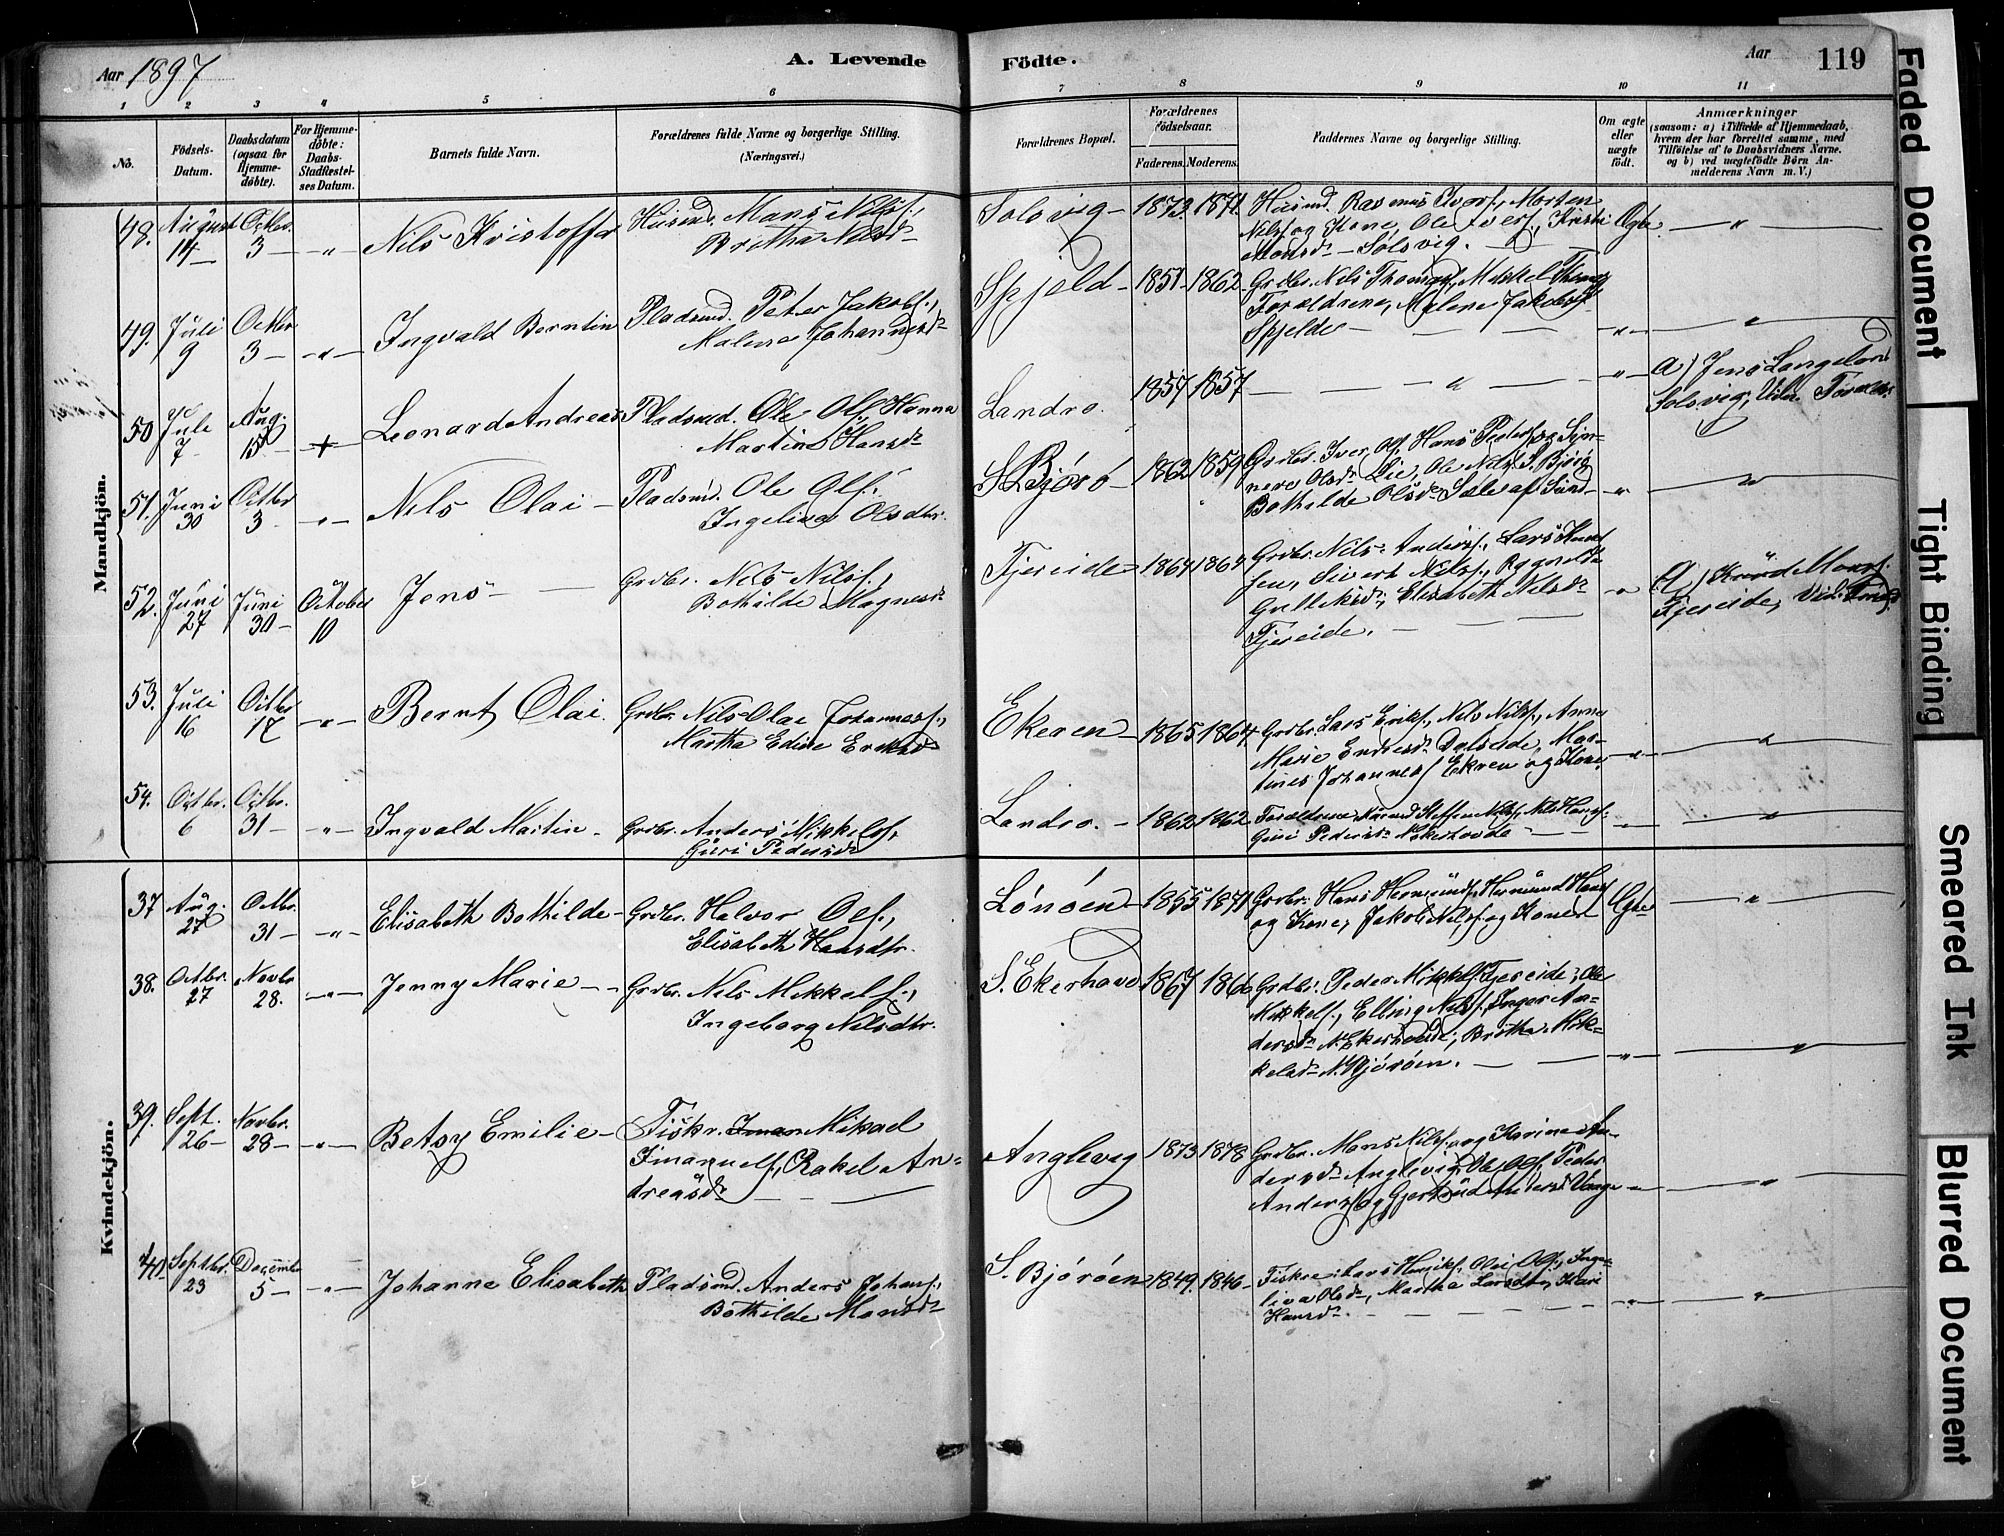 Aar 1897
A. Levende
Födte.
Aar
119
1 2 3 4 5 6 7 8 9 10 11
No.
Födsels-
Datum.
Daabsdatum
(ogsaa for
Hjemme-
döbte).
For Hjemme-
döbte:
Daabs-
Stadfæstel-
ses Datum.
Barnets fulde Navn.
Forældrenes fulde Navne og borgerlige Stilling.
(Næringsvei.)
Forældrenes Bopæl.
Forældrenes
Födselsaar.
Faderens. Moderens.
Faddernes Navne og borgerlige Stilling.
Om ægte
eller
uægte
födt.
Anmærkninger
(saasom: a) i Tilfælde af Hjemmedaab,
hvem der har forrettet samme, med
Tilföielse af to Daabsvidners Navne.
og b) ved uægtefödte Börn An-
melderens Navn m. V.)
Mandkjön.
48. August 14 Octbr. 3 " Nils Kristoffer
Husmd. Mans Nilsf.,
Britha Nilsd.
Solsvig 1873 1871
Husmd. Rasmus Iversf., Morten
Nilsf. og Kone, Ole Iversf., Kristi
Monsd. Solsvig.
Ægte "
49. Juli 9 Octbr 3 " Ingvald Berntin
Pladsmd. Peter Jakobsf.,
Malene Johannesd.
Spjeld 1851 1862
Grdbr. Nils Thomasf., Mikkel Thomasf.
Forældrene, Malene Jakobsd.
Spjelde
" "
50 Juli 7 Aug. 15 + Leonard Andreas
Pladsmd. Ole Olsf., Hanna
Martina Hansd.
Landro. 1857 1857 "
" a) Jens Langeland
Solsvig, Vidn. Forældr.
51. Juni 30 Octbr 3 " Nils Olai
Pladsmd. Ole Olsf.,
Ingelina Olsdtr.
S. Bjørø 1862 1859
Grdbr. Iver Olsf., Hans Pedersf. og Syn-
neve Olsd. Lie, Ole Nilsf. S. Bjørø,
Bothilde Olsd. Sæle af Sund
" "
52. Juni 27 Juni 30 October 10 Jens
Grdbr. Nils Nilsf.,
Bothilde Magnesd.
Fjereide 1864 1864
Grdbr. Nils Andersf., Lars Knud
sen, Sivert Nilsf., Ragnilde
Gullaksd., Elisabeth Nilsd.
Fjereide.
" a) Knud Monsf.
Fjereide,
53. Juli 16 Octbr 17 " Bernt Olai.
Grdbr. Nils Olai Johannesf.,
Martha Edise Eriksd.
Ekeren 1865 1864
Grdbr. Lars Eriksf., Nils Nilsf., Anna
Marie Endresd. Dalseide, Mar-
tines Johannesf. Ekren og Kone,
" "
54. Octbr. 6 Octbr. 31 " Ingvald Martin
Grdbr. Anders Mikkelsf.,
Guri Pedersd.
Landro. 1862 1862
Forældrene, Steffen Nilsf., Nils Hansf.
Guri Pedersd. Nekerhovde
" "
Kvindekjön.
37 Aug. 27 Octbr. 31 " Elisabeth Bothilde
Grdbr. Halvor Olsf.,
Elisabeth Hansdtr.
Lønøen 1855 1871
Grdbr. Hans Hermundsf., Hermund Hansf.
og Kone, Jakob Nilsf. og Kone
Ægte "
38. Octbr. 27 Novbr 28. " Jenny Marie
Grdbr. Nils Mikkelsf.,
Ingeborg Nilsdtr.
S. Ekerhovd 1867 1866
Grdbr. Peder Mikkelsf. Fjereide, Ole
Mikkelsf., Elling Nilsf., Inger An-
dersd. N. Ekerhovde, Britha Mik-
kelsd. N. Bjørøen.
" "
39. Sept. 26 Novbr. 28 " Betsy Emilie
Fiskr. Iman Mikael
Imanuelsf., Rakel An-
dreasd.
Anglevig 1873 1878
Grdbr. Mons Nilsf. og Karine An-
dersd. Anglevig, Ole Olsf., Peder
Andersf. og Gjertrud Andersd. Vaage
" "
40 Septbr. 23 December 5 " Johanne Elisabeth
Pladsmd. Anders Johansf.,
Bothilde Monsd.
S. Bjørøen 1849. 1846
Fiskere: Lars Henrikf., Olai Olsf., Inge-
liva Olsd., Martha Larsdtr., Kari
Hansd.
" "
Faded Document
Tight Binding
Smeared Ink
Blurred Document